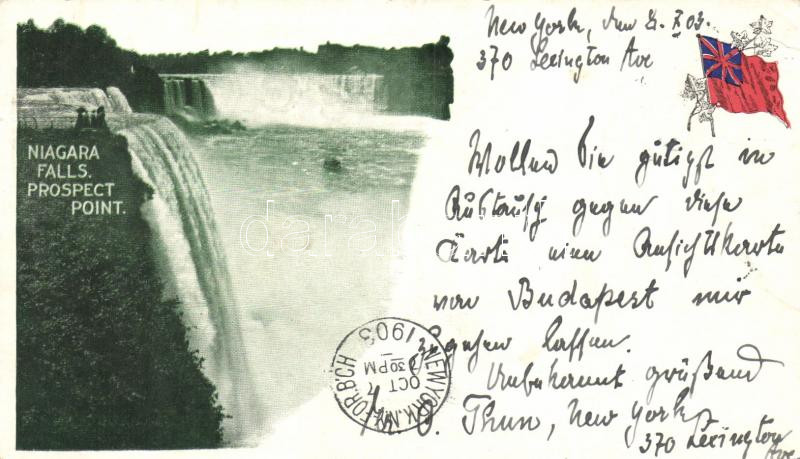 New York, den 6. X 03.
370 Lexington Ave
NIAGARA
FALLS.
PROSPECT
POINT.
Wollen Sie gütigst im
Austausch gegen diese
Karte eine Ansichtskarte
von Budapest mir
zugehen lassen.
Unbekannt grüßend
C. Thun, New York,
370 Lexington
Ave.
NEW YORK, N.Y. FOR. BCH
1903
OCT 7
30 PM